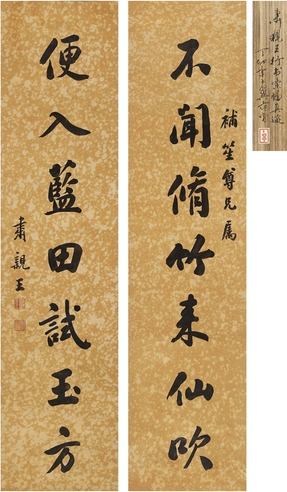 不聞脩竹来仙吹
補笙尊兄屬
便入藍田試玉方
肅親王
肅親王行書堂幅真迹